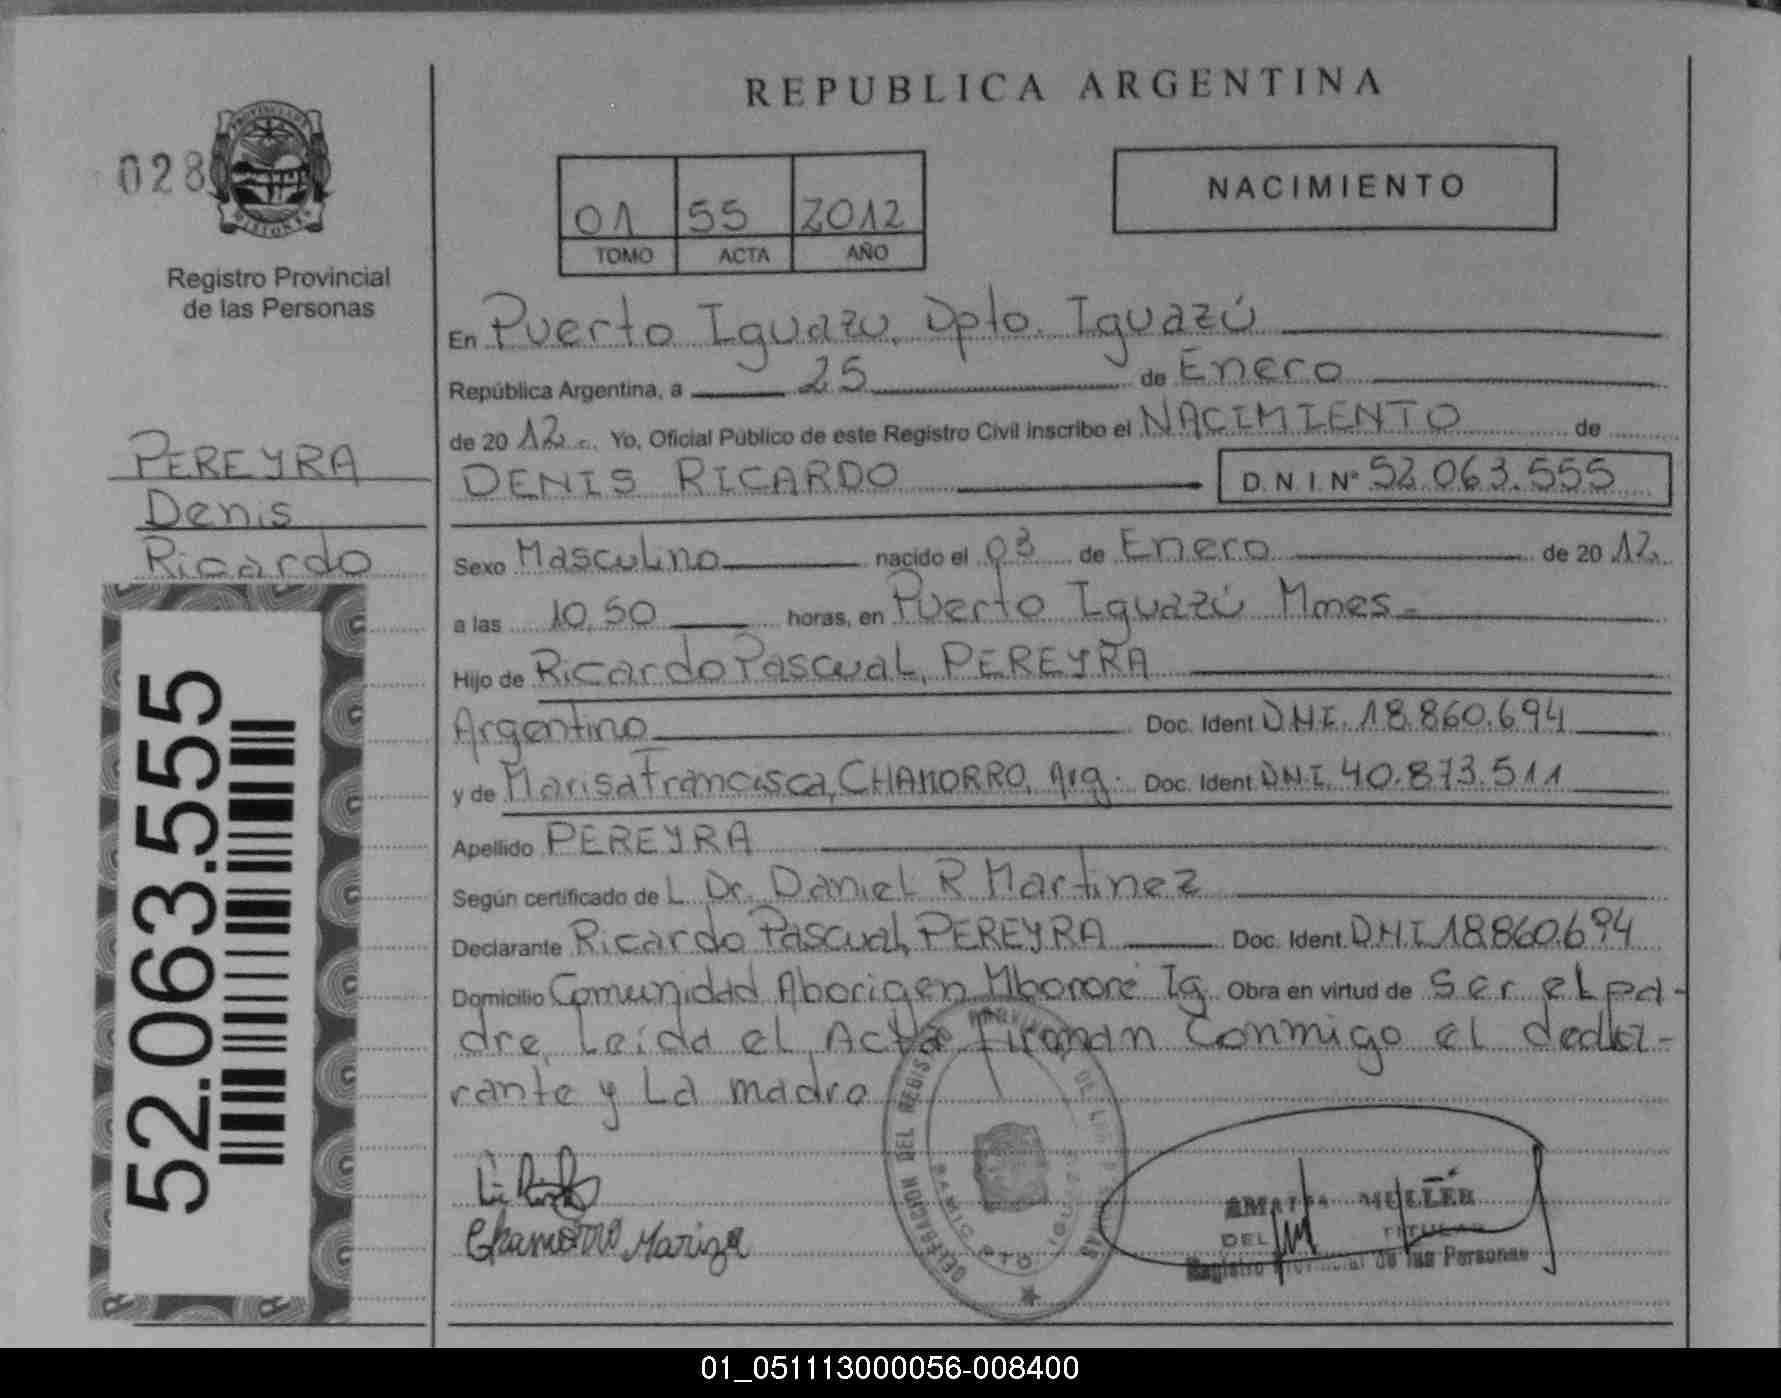 REPUBLICA ARGENTINA
028
Registro Provincial
de las Personas
01 55 2012
TOMO ACTA AÑO
NACIMIENTO
PEREYRA
Denis
Ricardo
52.063.555
En Puerto Iguazu, Dpto. Iguazú
República Argentina, a 25 de Enero
de 2012. Yo, Oficial Público de este Registro Civil inscribo el NACIMIENTO de
DENIS RICARDO D.N.I. Nº 52.063.555
Sexo Masculino nacido el 03 de Enero de 2012
a las 10,50 horas, en Puerto Iguazú Mnes.
Hijo de Ricardo Pascual, PEREYRA
Argentino Doc. Ident. D.N.I. 18.860.694
y de Marisa Francisca, CHAMORRO, Arg. Doc. Ident. D.N.I. 40.873.511
Apellido PEREYRA
Según certificado de L Dr. Daniel R Martinez
Declarante Ricardo Pascual, PEREYRA Doc. Ident. D.N.I 18860.694
Domicilio Comunidad Aborigen Mbororé Ig. Obra en virtud de ser el pa-
dre, Leída el Acta firman Conmigo el decla-
rante y La madre
Chamorro Mariza
DELEGACION DEL REGISTRO PROVINCIAL DE LAS PERSONAS
PTO IGUAZU
MULLER
DEL TITULAR
Registro Provincial de las Personas
01_051113000056-008400